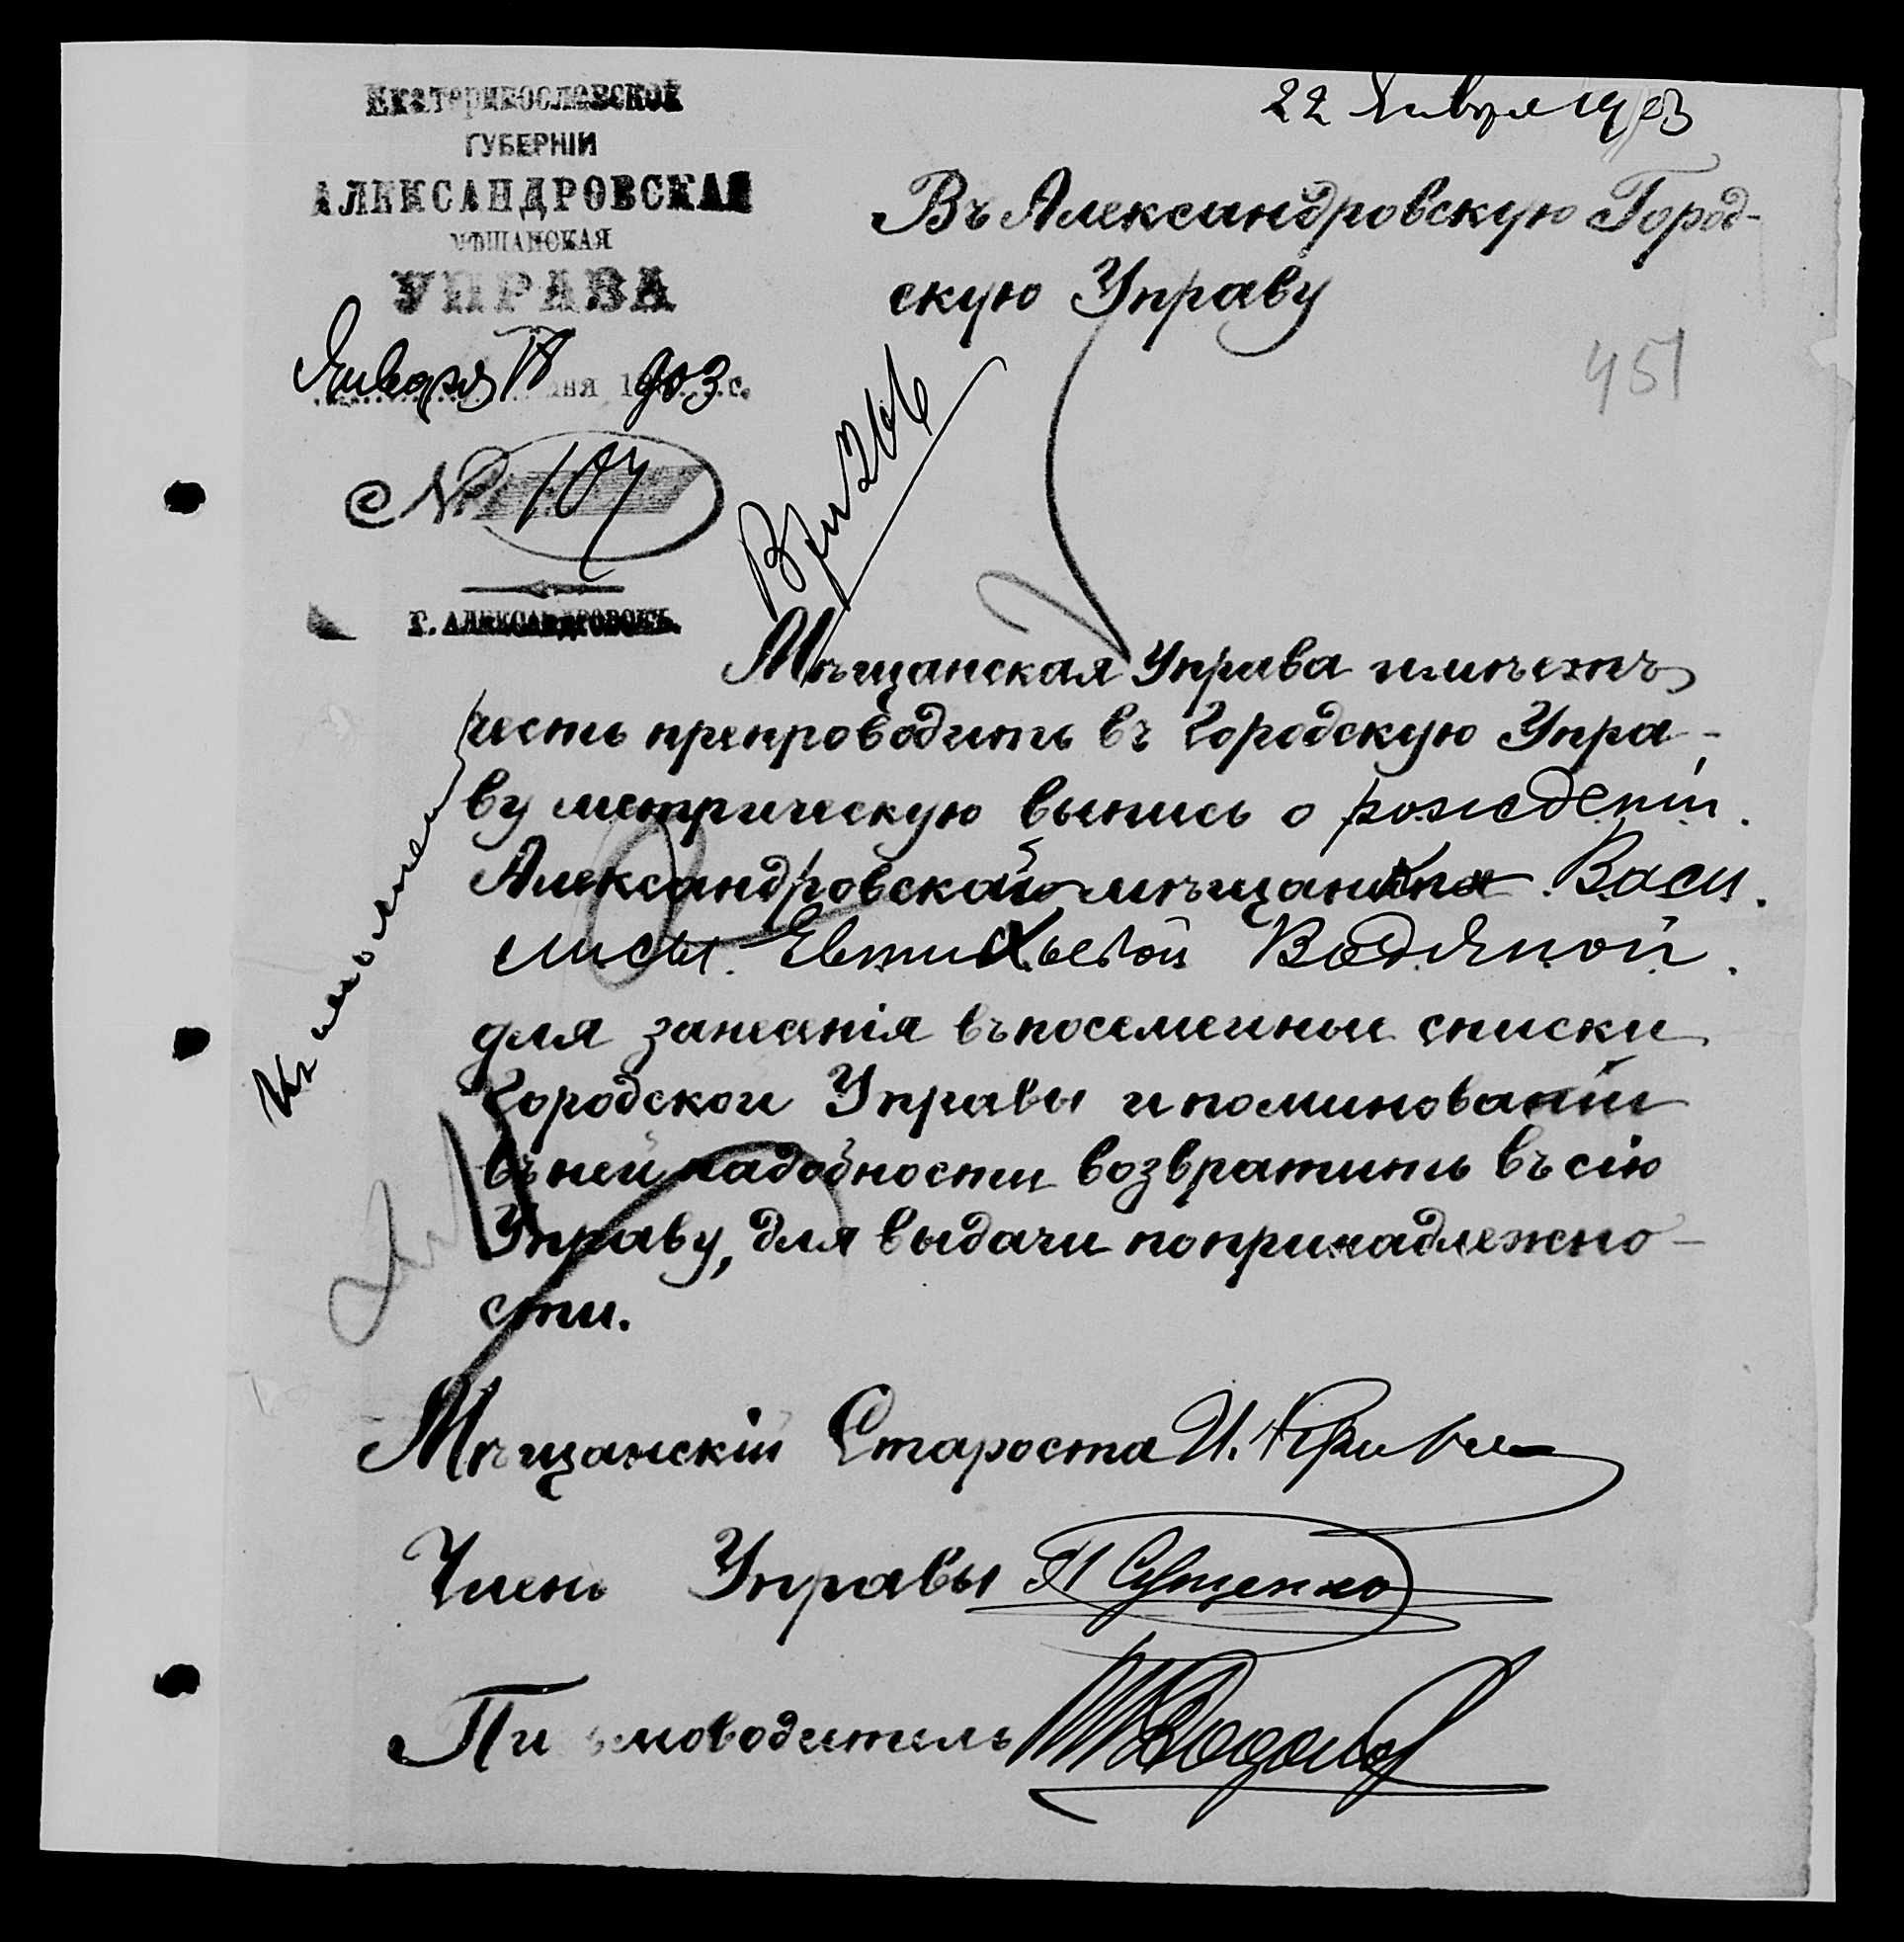 ЕКАТЕРИНОСЛАВСКОЙ
ГУБЕРНІИ
АЛЕКСАНДРОВСКАЯ
МѢЩАНСКАЯ
УПРАВА
Января 18 дня 1903 г.
№ 107
Г. АЛЕКСАНДРОВСКЪ.
22 Января 1903
Въ Александровскую Город-
скую Управу
451
Вх 266
Мѣщанская Управа имѣетъ
честь препроводить въ Городскую Упра-
ву метрическую выпись о рожденіи
Александровской мѣщанки Васи
лисы Евтихьевой Водяной
для занесенія въ посемейные списки
Городской Управы и по минованіи
въ ней надобности возвратить въ сію
Управу, для выдачи по принадлежно-
сти.
Мѣщанскій Староста И.
Членъ Управы П Сущенко
Письмоводитель